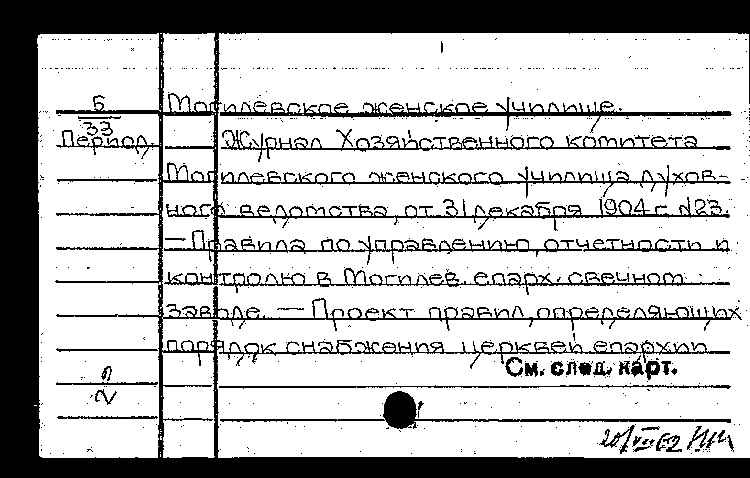 Б
33
Период.
Могилевское женское училище.
Журнал Хозяйственного комитета
Могилевского женского училища духов-
ного ведомства, от 31 декабря 1904 г. №23.
— Правила по управлению, отчетности и
контролю в Могилев. епарх. свечном
заводе. — Проект правил, определяющих
порядок снабжения церквей епархии
См. след. карт.